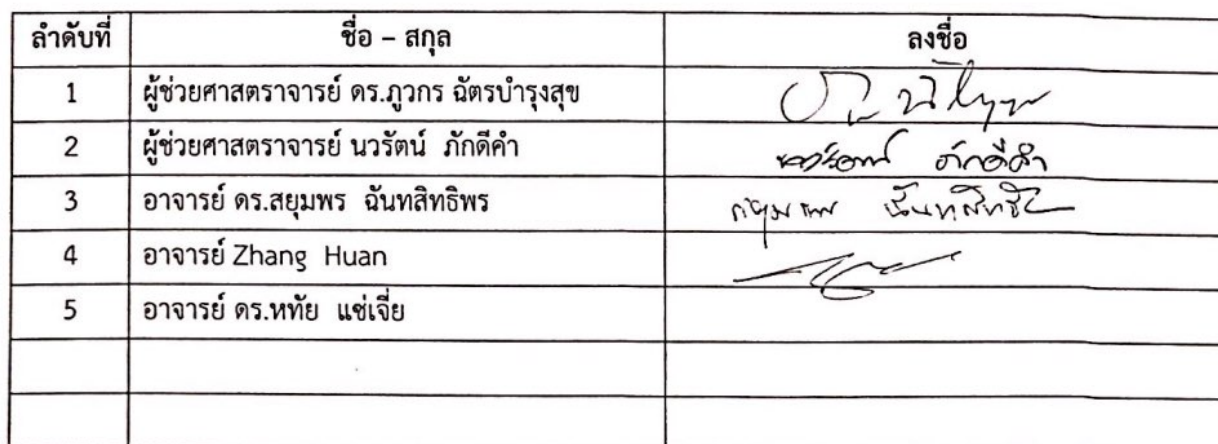 ลำดับที่ ชื่อ – สกุล ลงชื่อ
1 ผู้ช่วยศาสตราจารย์ ดร.ภูวกร ฉัตรบำรุงสุข
2 ผู้ช่วยศาสตราจารย์ นวรัตน์ ภักดีคำ นวรัตน์ ภักดีคำ
3 อาจารย์ ดร.สยุมพร ฉันทสิทธิพร สยุมพร ฉันทสิทธิพร
4 อาจารย์ Zhang Huan
5 อาจารย์ ดร.หทัย แซ่เจี่ย